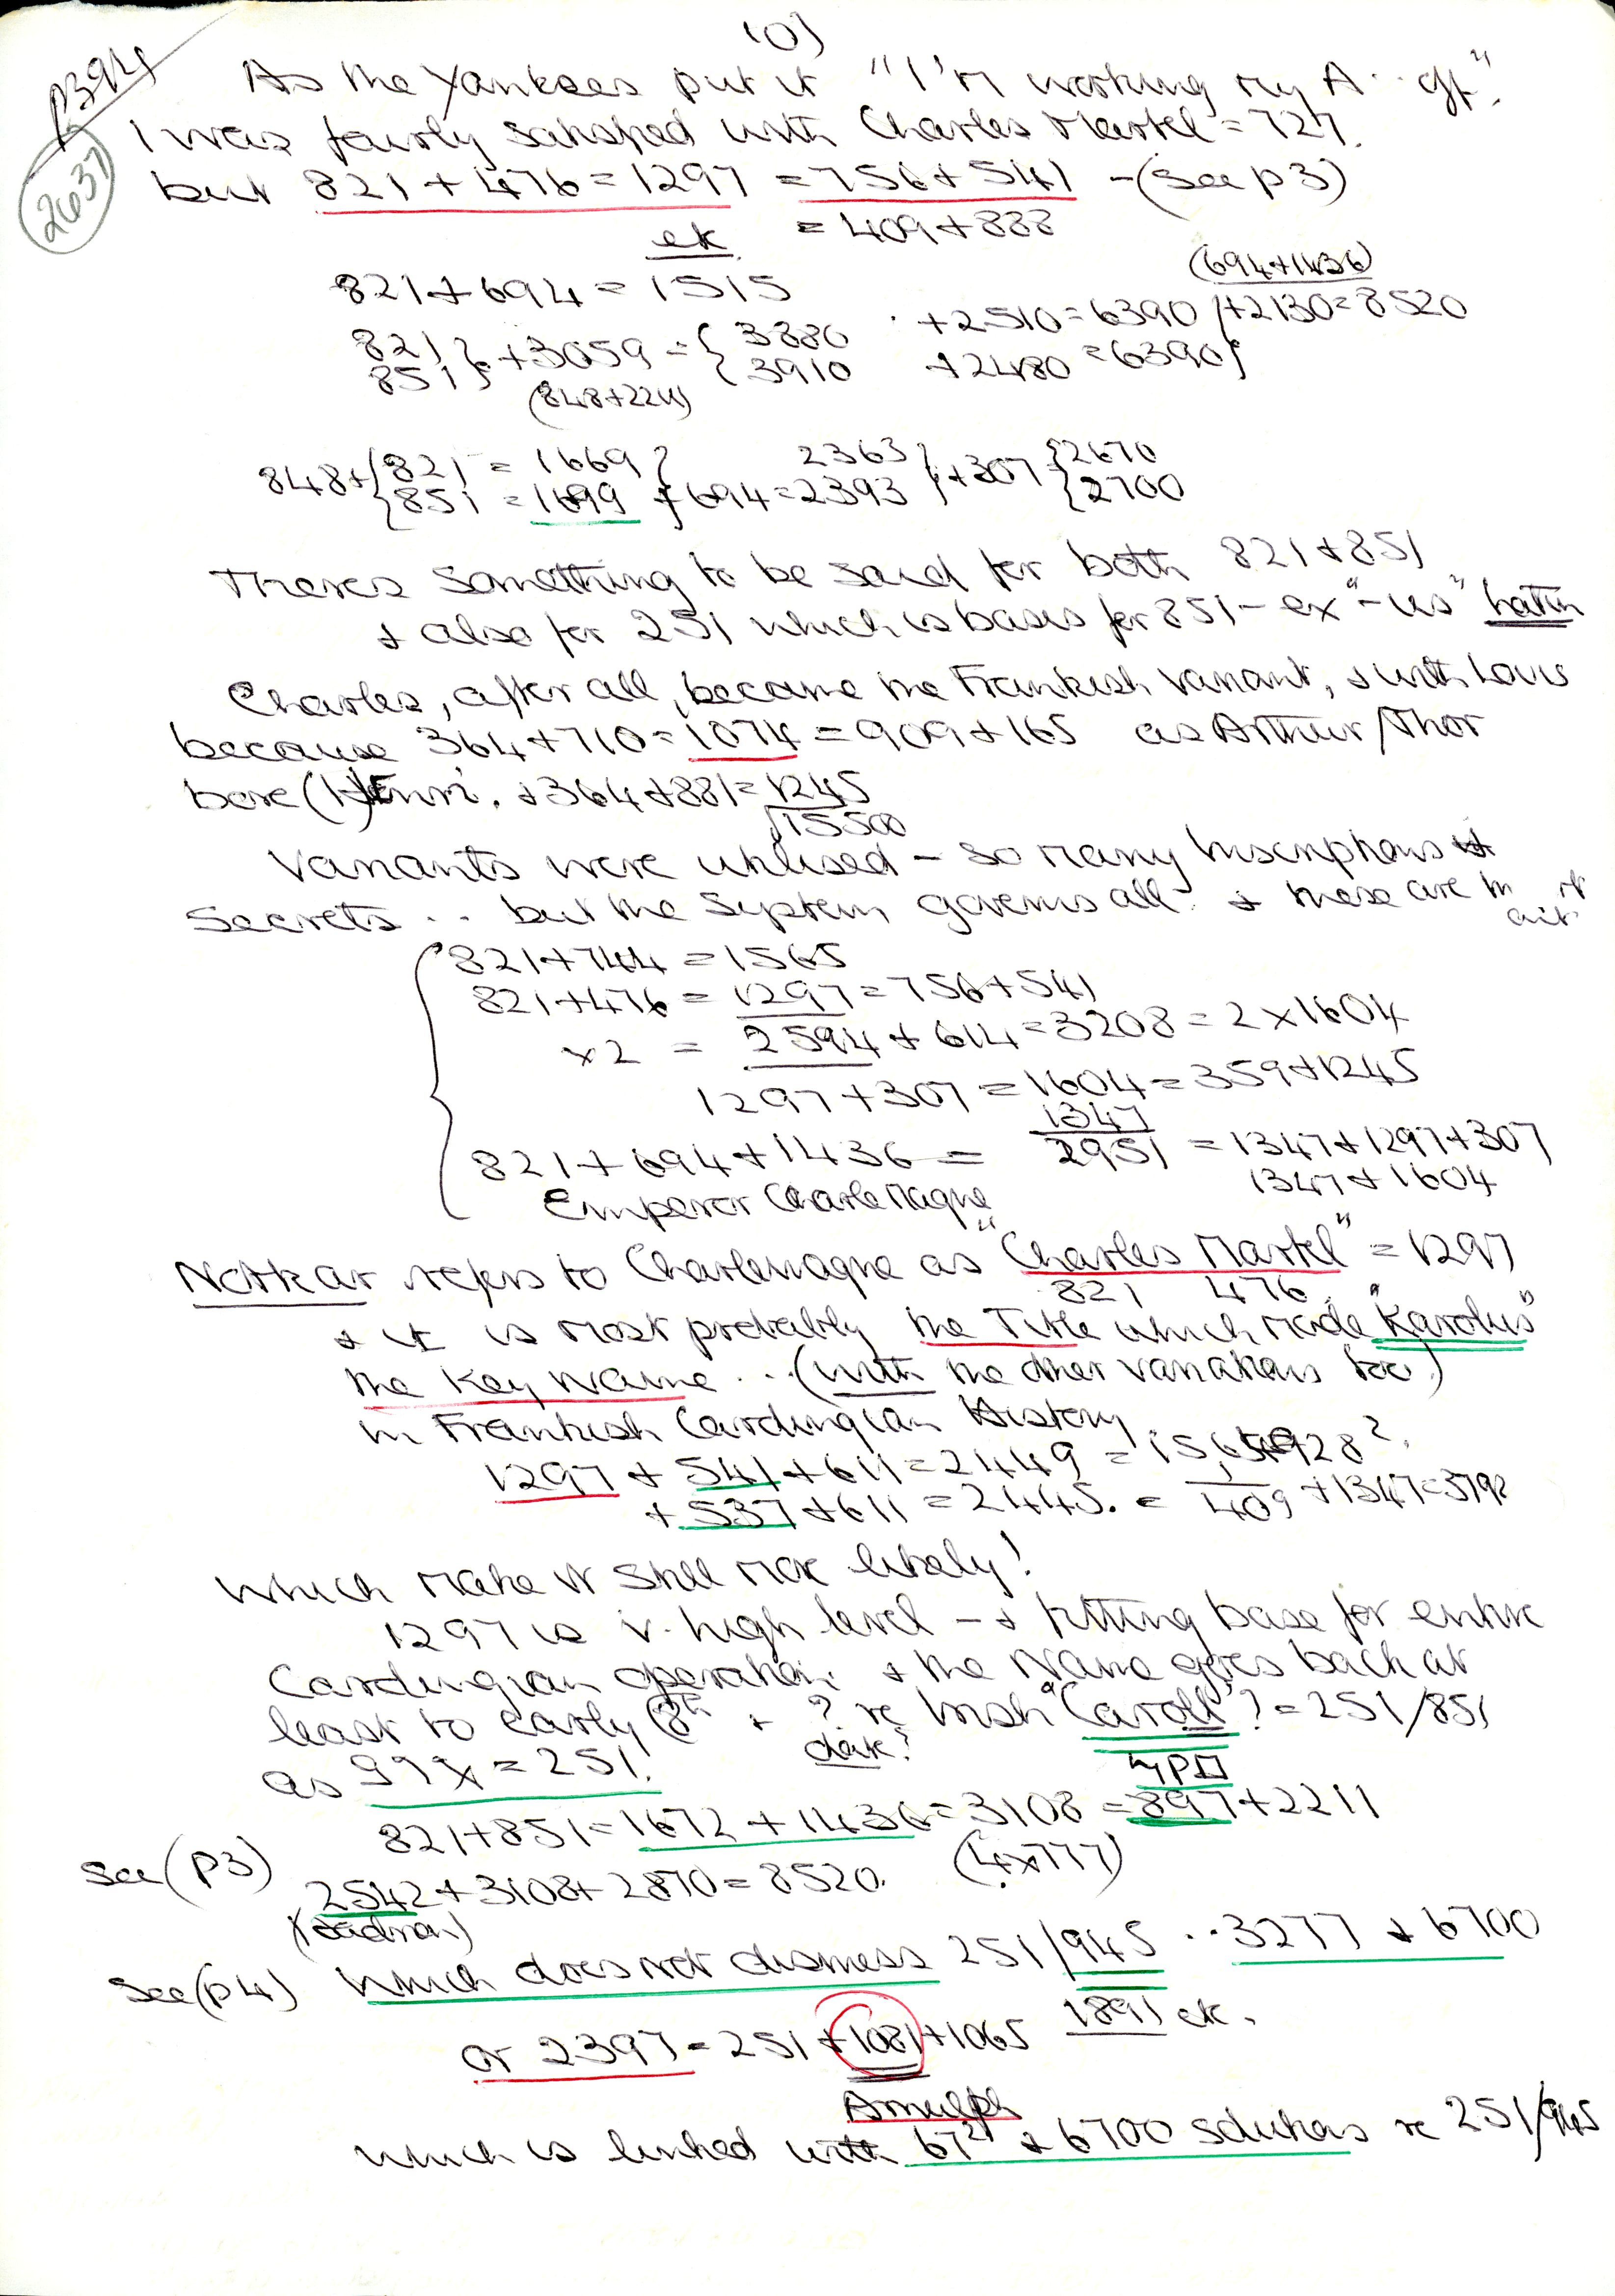 (0)
P394
2637
As the Yankees put it "I'm working my A.. off".
I was fairly satisfied with Charles Martel = 727.
but 821 + 476 = 1297 = 756 + 541 - (see p3)
= 409 + 888
etc
821 + 694 = 1515
(694+1436)
821 } + 3059 = { 3880 . +2510 = 6390 } +2130 = 8520
851 } { 3910 +2480 = 6390 }
(848+2211)
848+ { 821 = 1669 } 2363 } +307 { 2670
{ 851 = 1699 } +694 = 2393 } { 2700
Theres something to be said for both 821 + 851
+ also for 251 which is basis for 851 - ex "-us" Latin
Charles, after all, became the Frankish variant, + with Louis
because 364 + 710 = 1074 = 909 + 165 as Arthur/Thor
bore (H)Enri. + 364 + 881 = 1245
√15500
Variants were utilised - so many Inscriptions +
Secrets .. but the System governs all. + these are in it
821 + 744 = 1565
821 + 476 = 1297 = 756 + 541
x 2 = 2594 + 614 = 3208 = 2 x 1604
1297 + 307 = 1604 = 359 + 1245
1347
821 + 694 + 1436 = 2951 = 1347 + 1297 + 307
Emperor CharleMagne 1347 + 1604
Notkar refers to Charlemagne as "Charles Martel" = 1297
821 476.
+ it is most probably the Title which made "Karolus"
the Key Name ... (with the other variations too)
in Frankish Carolingian History
1297 + 541 + 611 = 2449 =
+ 537 + 611 = 2445. = 409 + 1347 = 3792
Which make it still more likely!
1297 is v. high level - + fitting base for entire
Carolingian operation. + the Name goes back at
least to early 8th + ? re Irish "Caroll"? = 251/851
date?
as 997x = 251!
821 + 851 = 1672 + 1436 = 3108 = 897 + 2211
See (p3)
(4x777)
2542 + 3108 + 2870 = 8520.
See (p4) Which does not dismiss 251/945 .. 3277 + 6700
1891 etc.
or 2397 = 251 + 1081 + 1065
Arnulph
which is linked with 67² + 6700 solutions re 251/945